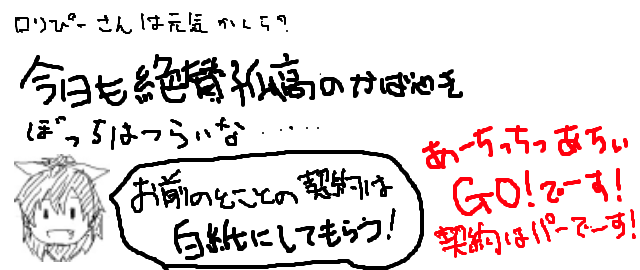 ロリぴーさんは元気かしら?
今日も絶賛孤高のかば池を
ぼっちはつらいな.....
お前のとことの契約は
白紙にしてもらう!
あーちっちっあちぃ
GO!でーす!
契約はパーでーす!